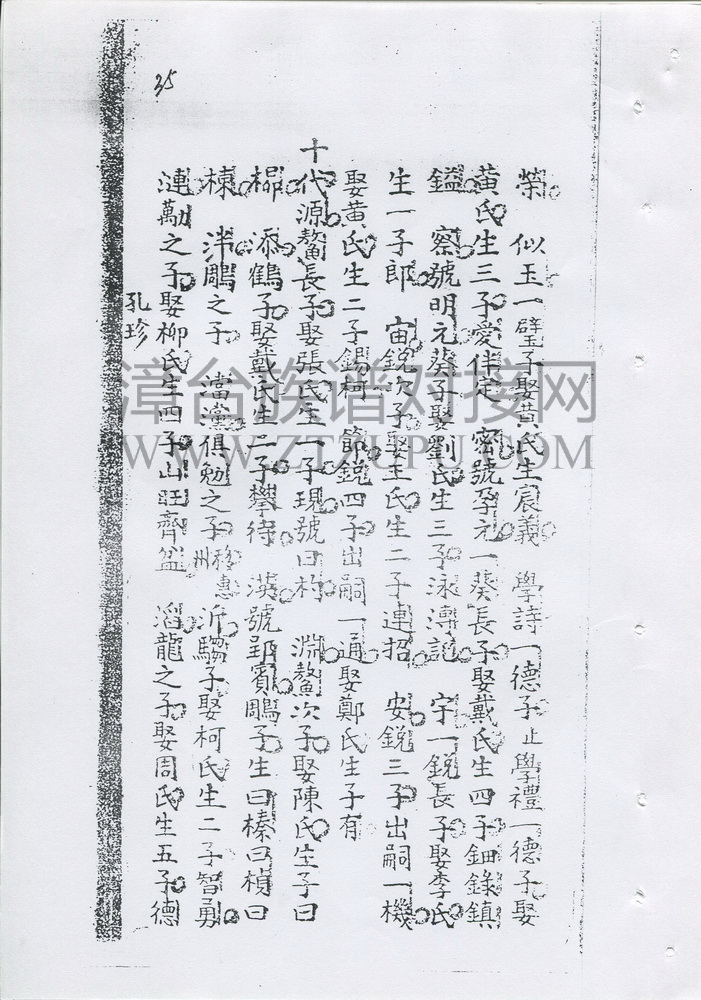 35
榮 似玉一璧子娶黄氏生宸義 學詩一德子止學禮一德子娶
黄氏生三子愛伴定 密號孕元一葵長子娶戴氏生四子鈿錄鎮
鎰 察號明元葵子娶劉氏生三子泳漙記 宇一銳長子娶李氏
生一子郎 宙銳次子娶王氏生二子連招 安銳三子出嗣一機
娶黄氏生二子錫柯 節銳四子出嗣一通娶鄭氏生子有
十代源鰲長子娶張氏生一子現號曰杓 淵鰲次子娶陳氏生子曰
添鶴子娶戴氏生二子攀待 漢號郢賓鵰子生曰榛曰楨曰
棟 泮鵰之子 澢灙俱勉之子移惠州 沂騶子娶柯氏生二子智勇
漣勱之子娶柳氏生四子山旺齊盆 滔龍之子娶周氏生五子德
孔珍
漳台族谱对接网
WWW.ZTZUPU.COM